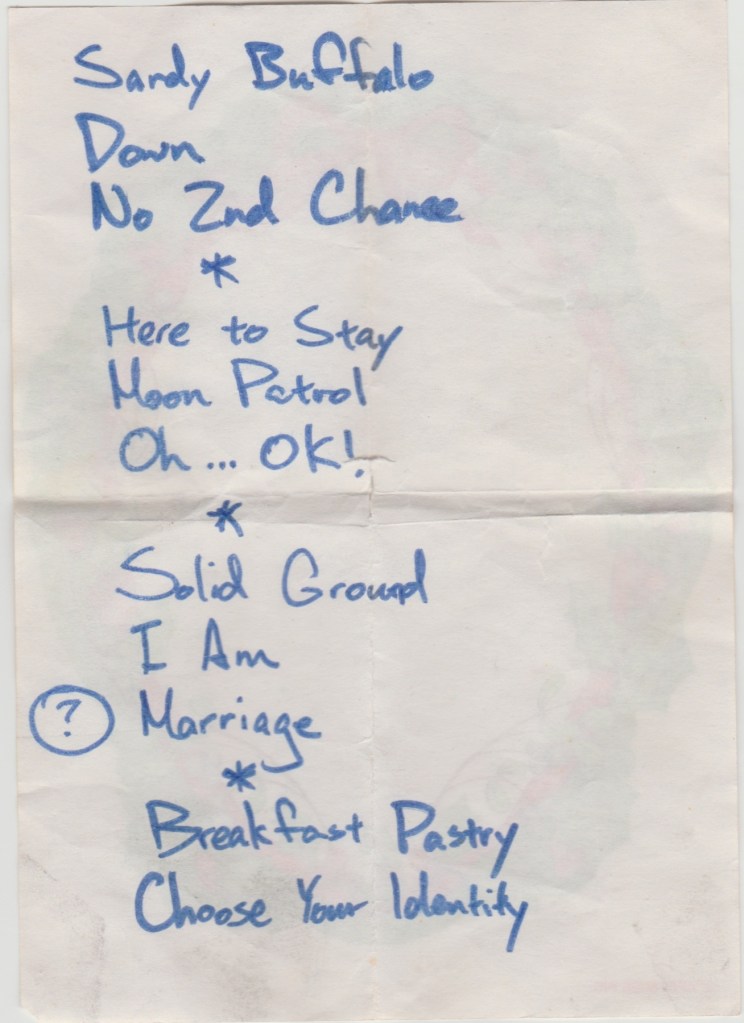 Sandy Buffalo
Down
No 2nd Chance
*
Here to Stay
Moon Patrol
Oh... OK!
*
Solid Ground
I Am
? Marriage
*
Breakfast Pastry
Choose Your Identity